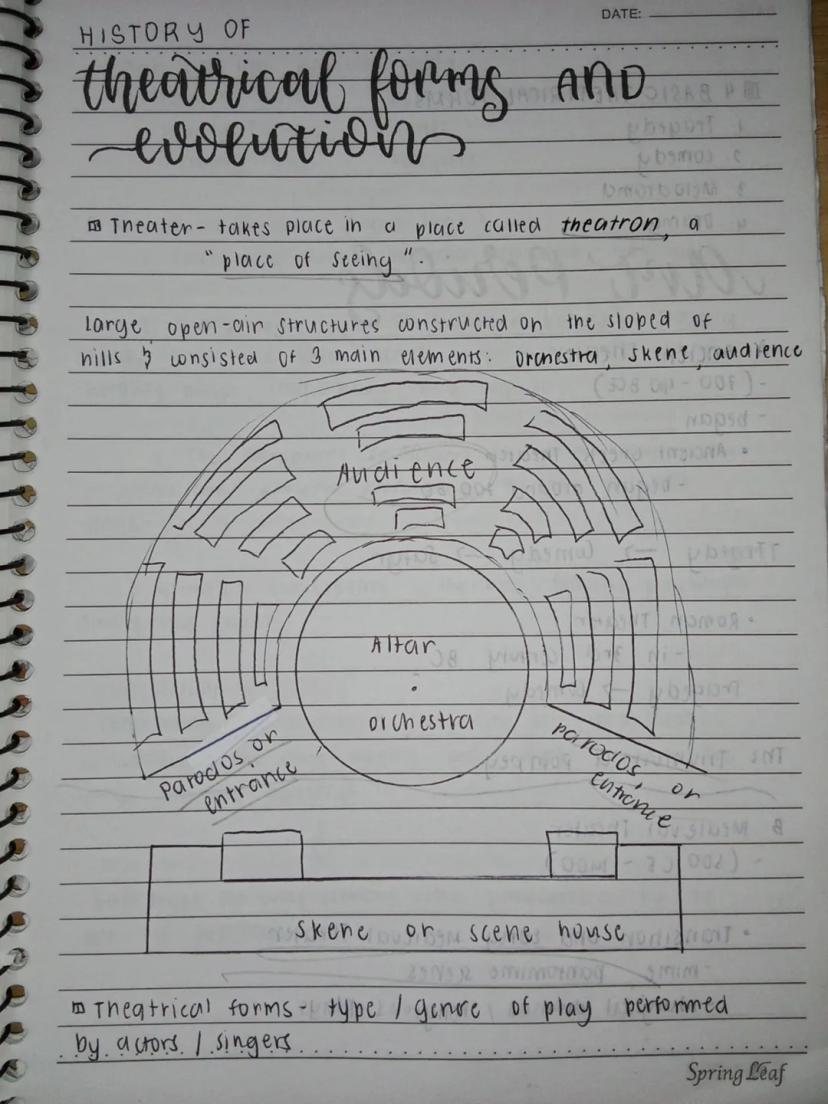 DATE:
HISTORY OF
theatrical forms AND
evolution
Theater - takes place in a place called theatron, a
"place of seeing".
Large, open-air structures constructed on the sloped of
hills & consisted of 3 main elements: orchestra, skene, audience
Audience
Altar
orchestra
Parodos or
entrance
parodos, or
entrance
skene or scene house
Theatrical forms - type / genre of play performed
by actors / singers
Spring Leaf